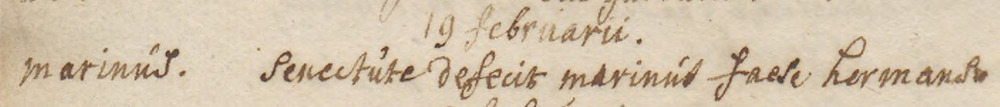 19 februarii.
marinus. Senectute defecit marinus faese hermans